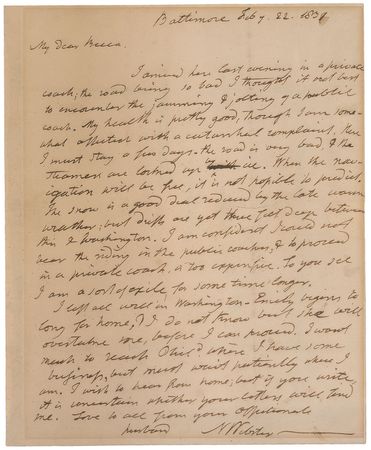 Baltimore Feby. 22. 1831
My Dear Becca.
I arrived here last evening in a private
coach; the road being so bad I thought it not best
to encounter the jamming & jolting of a public
coach. My health is pretty good, though I am some-
what affected with a catarrhal complaint. Here
I must stay a few days. the road is very bad & the
steamers are locked up by ice. When the nav-
igation will be free, it is not possible to predict.
The snow is a good deal reduced by the late warm
weather; but drifts are yet three feet deep between
this & Washington. I am confident I could not
bear the riding in the public coaches, & to proceed
in a private coach, is too expensive. So you see
I am a sort of exile for some time longer.
I left all well in Washington. Emily begins to
long for home, & I do not know but she will
overtake me, before I can proceed. I want
much to reach Phild. where I have some
business, but must wait patiently where I
am. I wish to hear from home; but if you write,
it is uncertain whether your letters will find
me. Love to all from your affectionate
husband N Webster